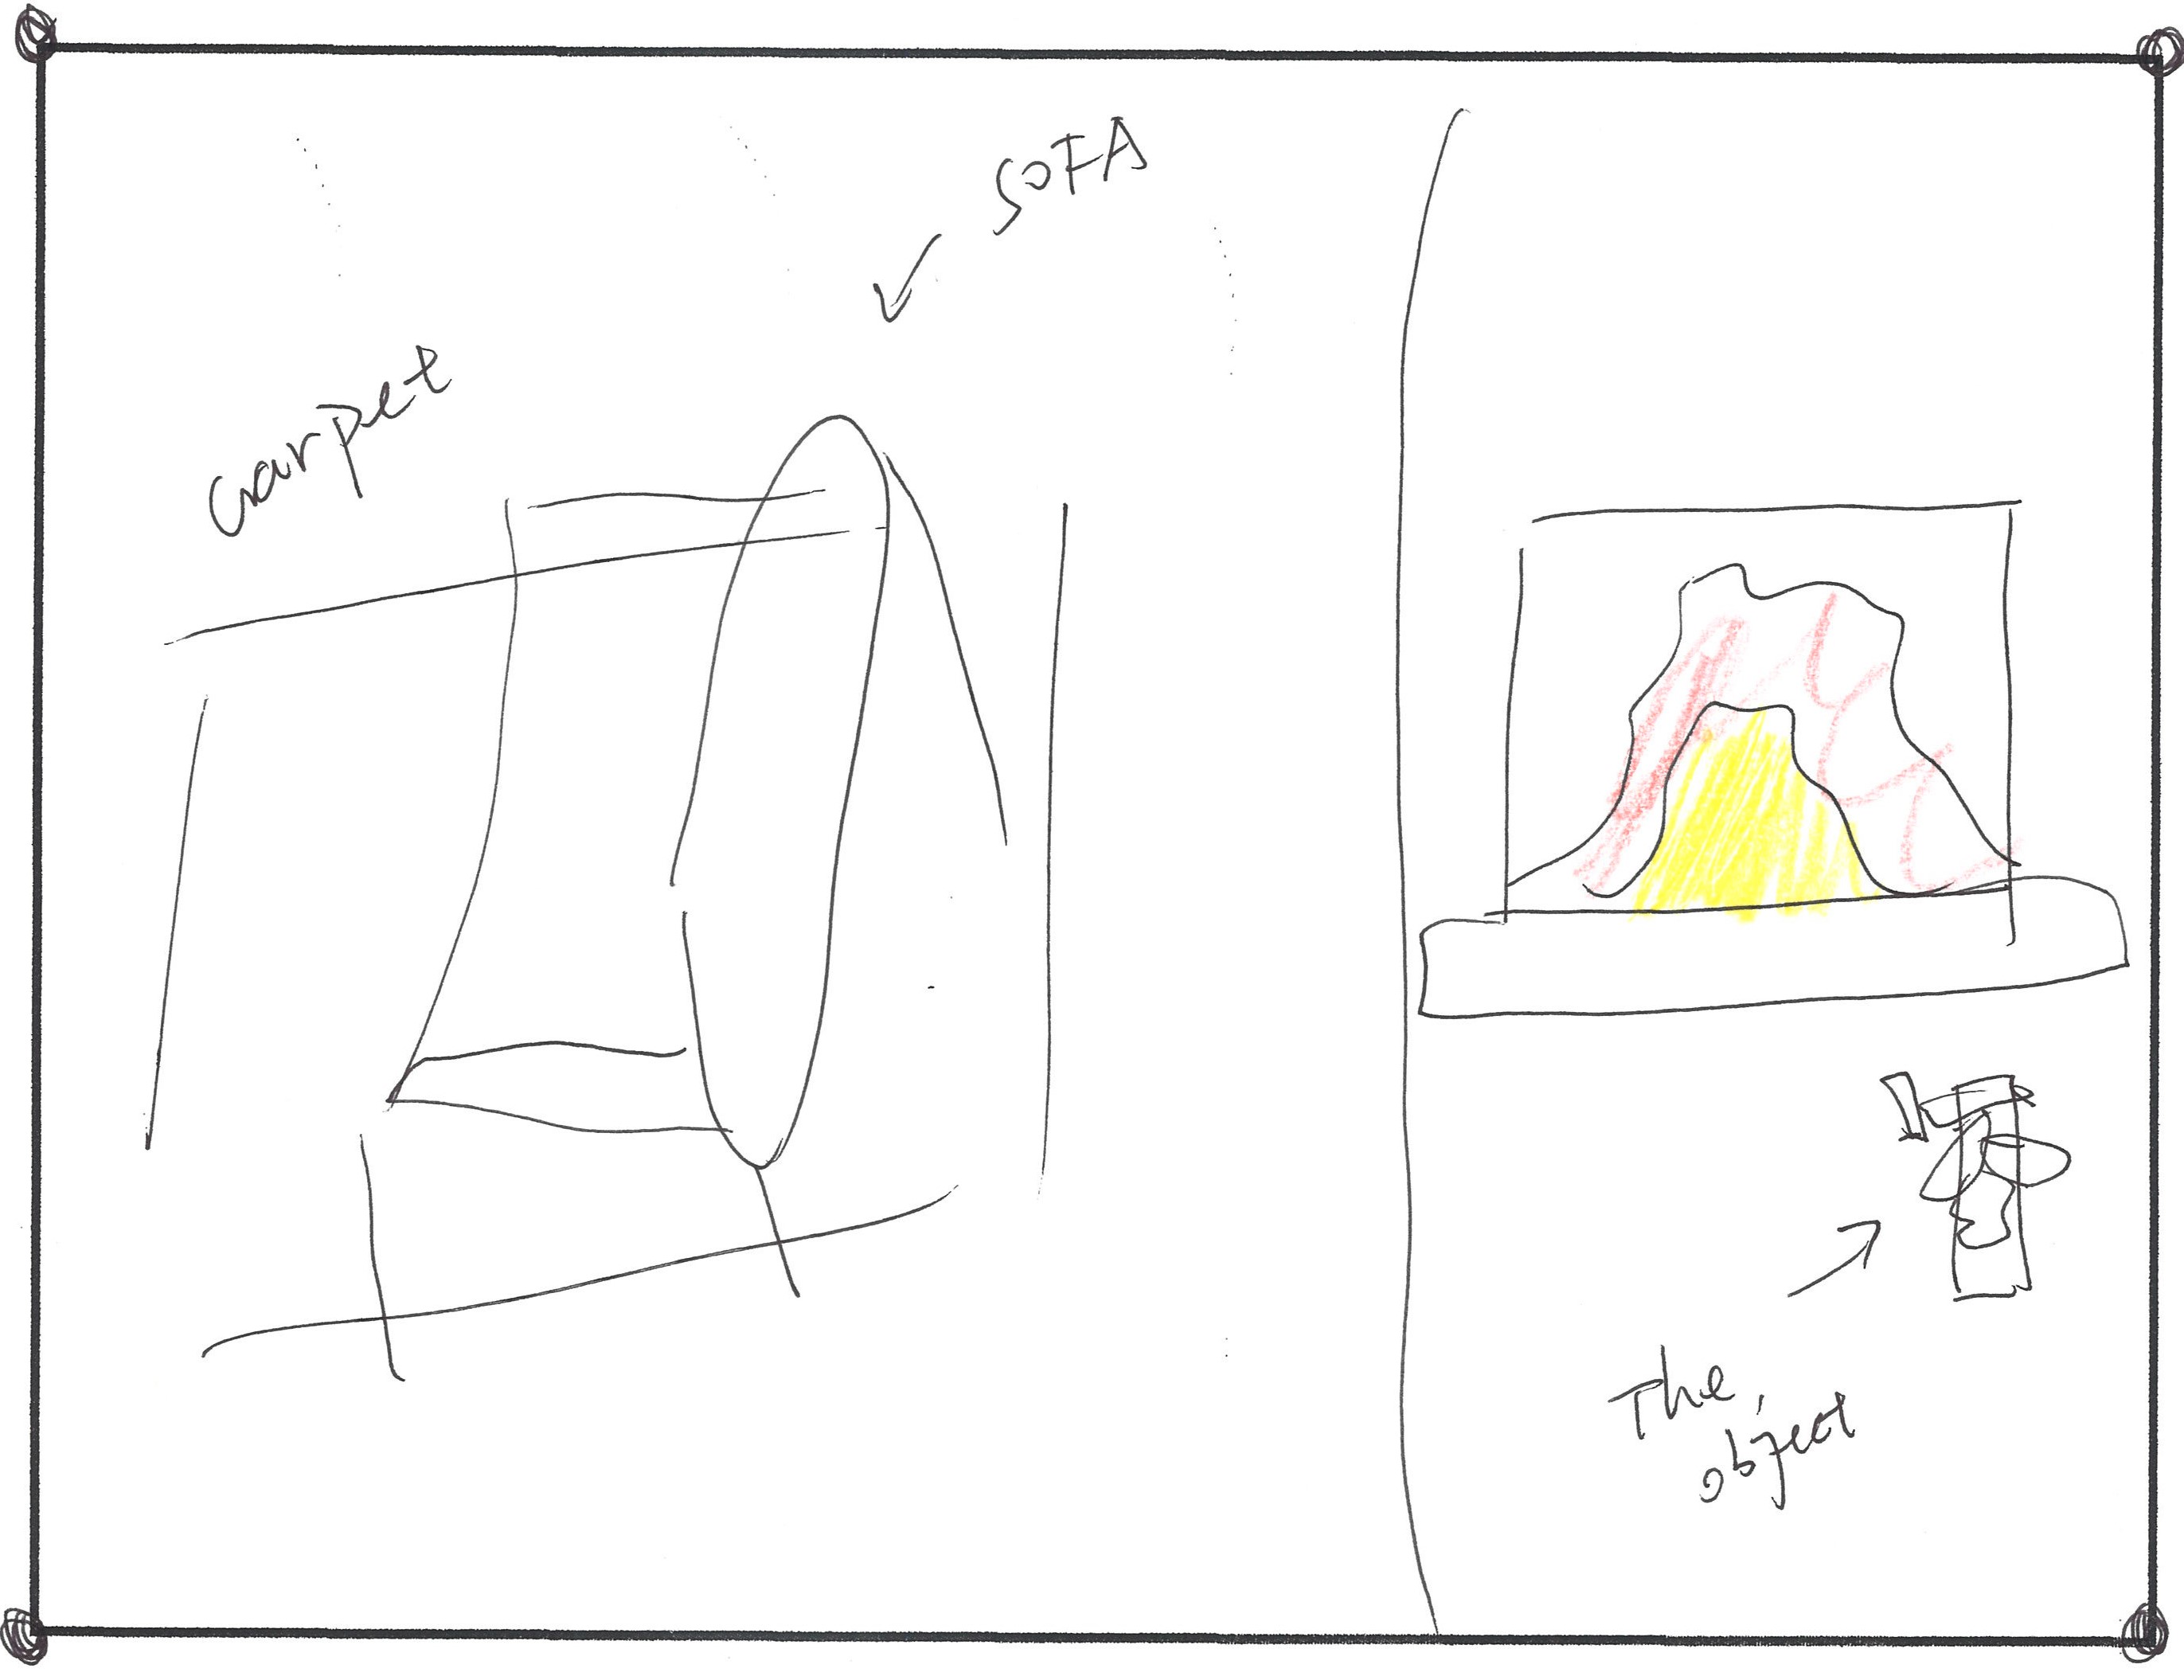 SOFA
carpet
The
object